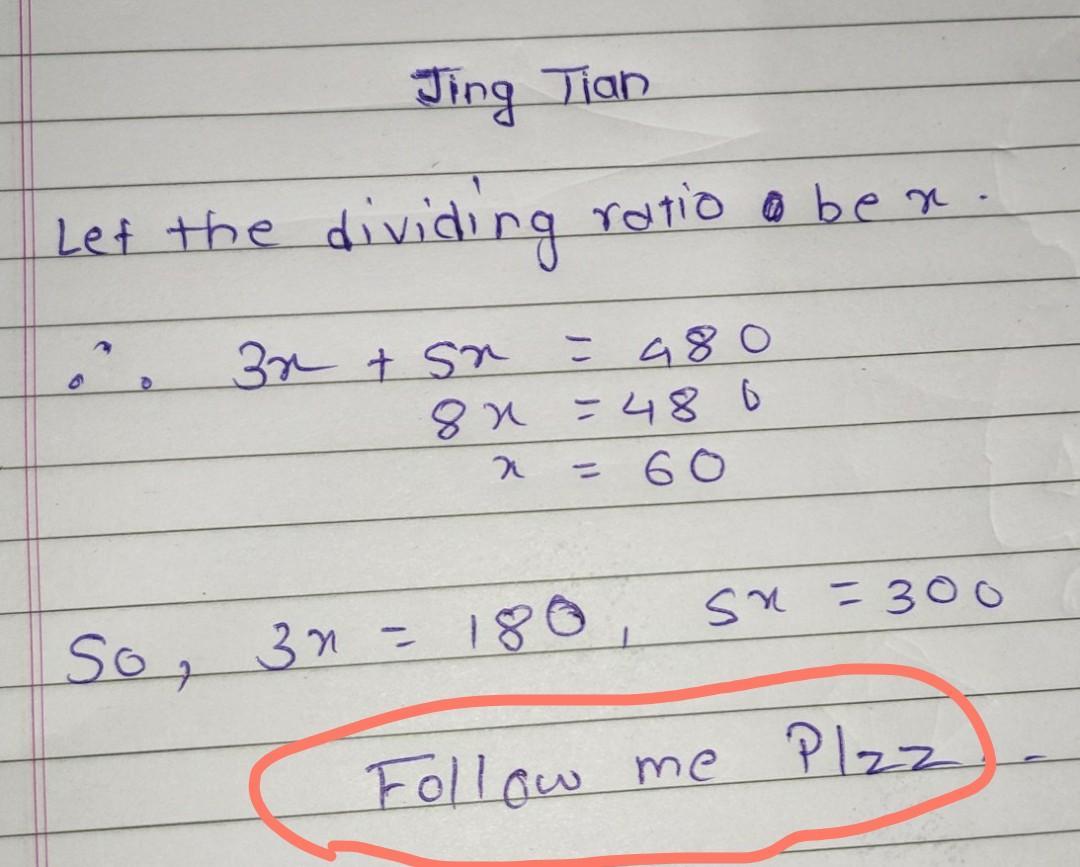 Jing Tian
Let the dividing ratio be x.
∴ 3x + 5x = 480
8x = 480
x = 60
So, 3x = 180, 5x = 300
Follow me Plzz.